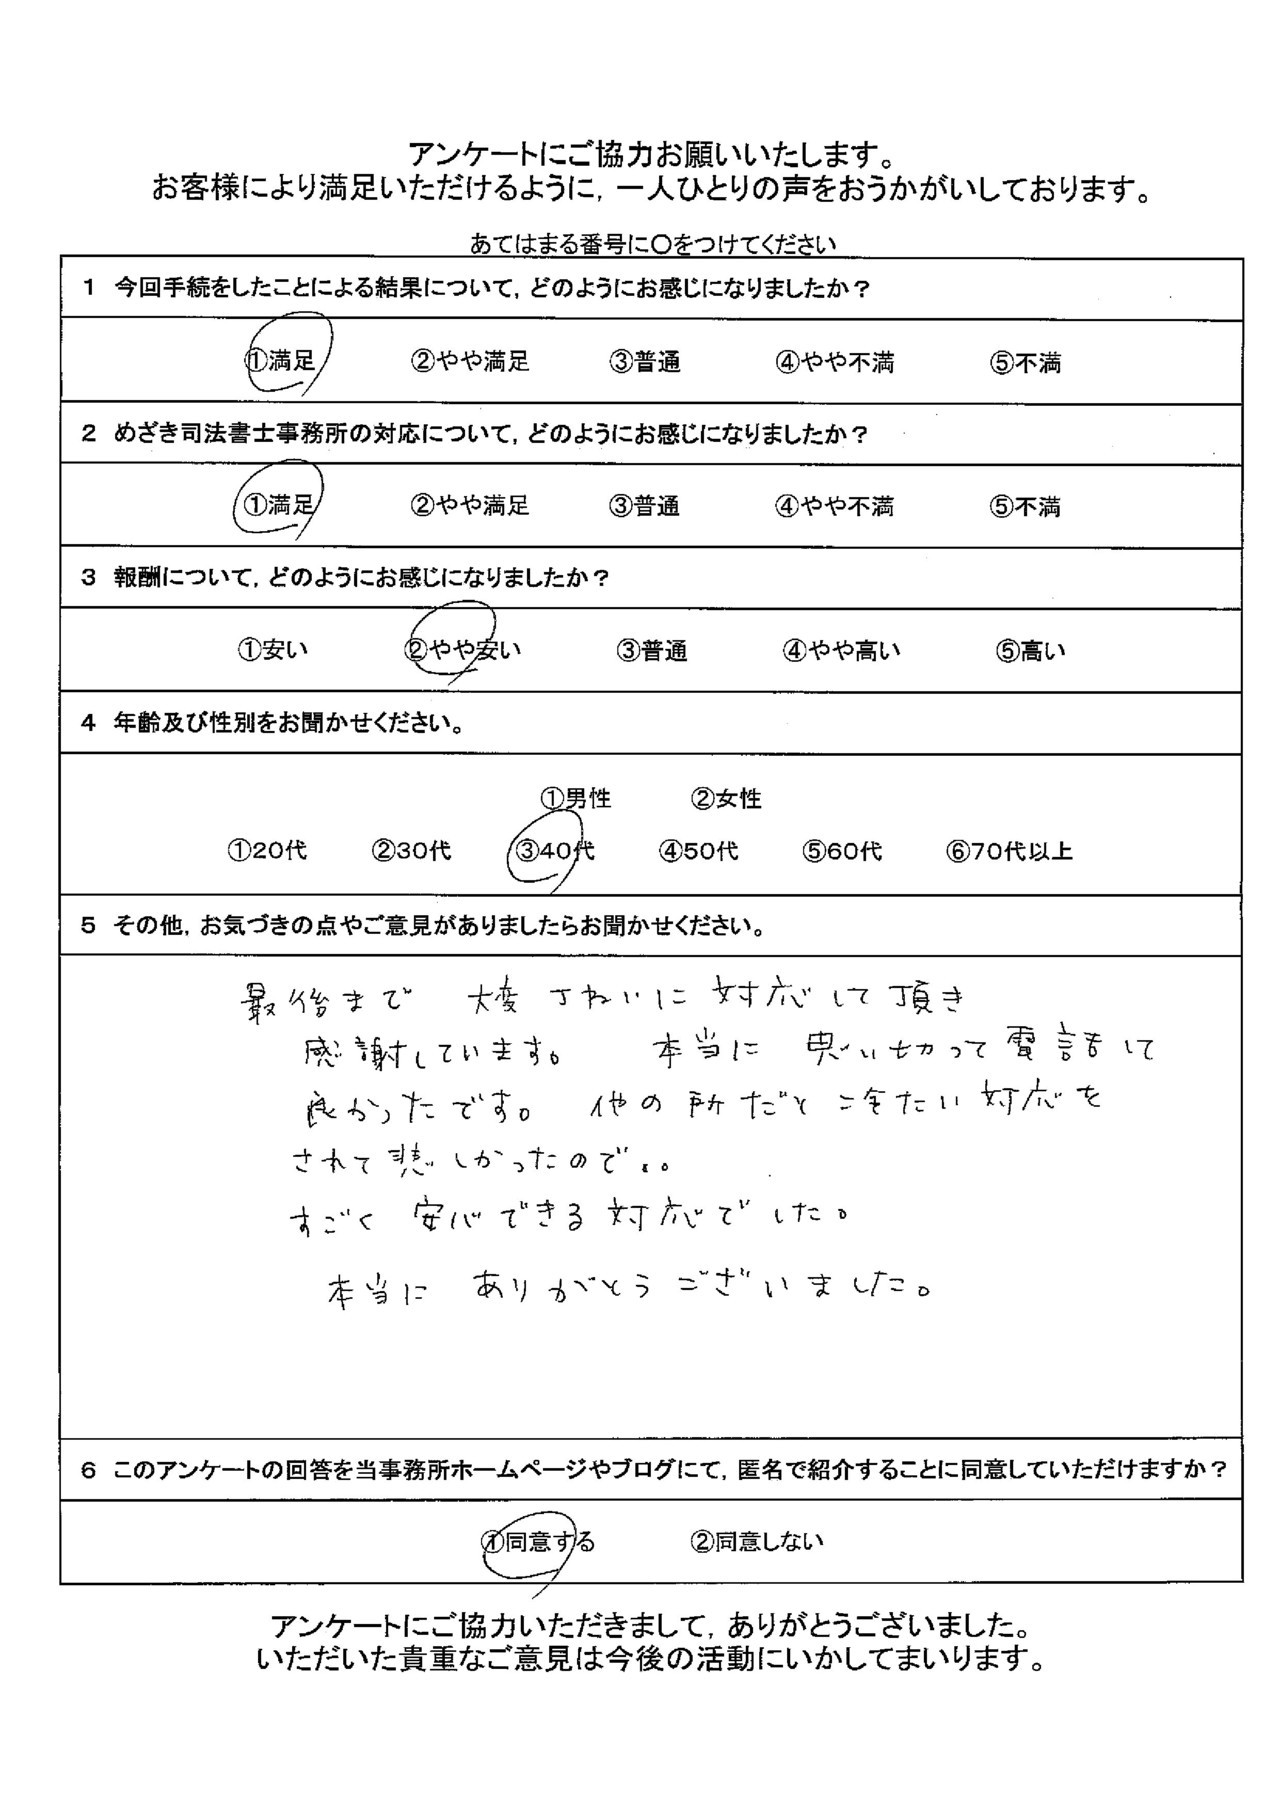 アンケートにご協力お願いいたします。
お客様により満足いただけるように，一人ひとりの声をおうかがいしております。
あてはまる番号に〇をつけてください
1 今回手続をしたことによる結果について，どのようにお感じになりましたか？
①満足 ②やや満足 ③普通 ④やや不満 ⑤不満
2 めざき司法書士事務所の対応について，どのようにお感じになりましたか？
①満足 ②やや満足 ③普通 ④やや不満 ⑤不満
3 報酬について，どのようにお感じになりましたか？
①安い ②やや安い ③普通 ④やや高い ⑤高い
4 年齢及び性別をお聞かせください。
①男性 ②女性
①20代 ②30代 ③40代 ④50代 ⑤60代 ⑥70代以上
5 その他，お気づきの点やご意見がありましたらお聞かせください。
最後まで 大変 ていねいに 対応して頂き
感謝しています。 本当に 思い切って電話して
良かったです。 他の所だと 冷たい対応を
されて悲しかったので、。
すごく 安心できる対応でした。
本当に ありがとうございました。
6 このアンケートの回答を当事務所ホームページやブログにて，匿名で紹介することに同意していただけますか？
①同意する ②同意しない
アンケートにご協力いただきまして，ありがとうございました。
いただいた貴重なご意見は今後の活動にいかしてまいります。